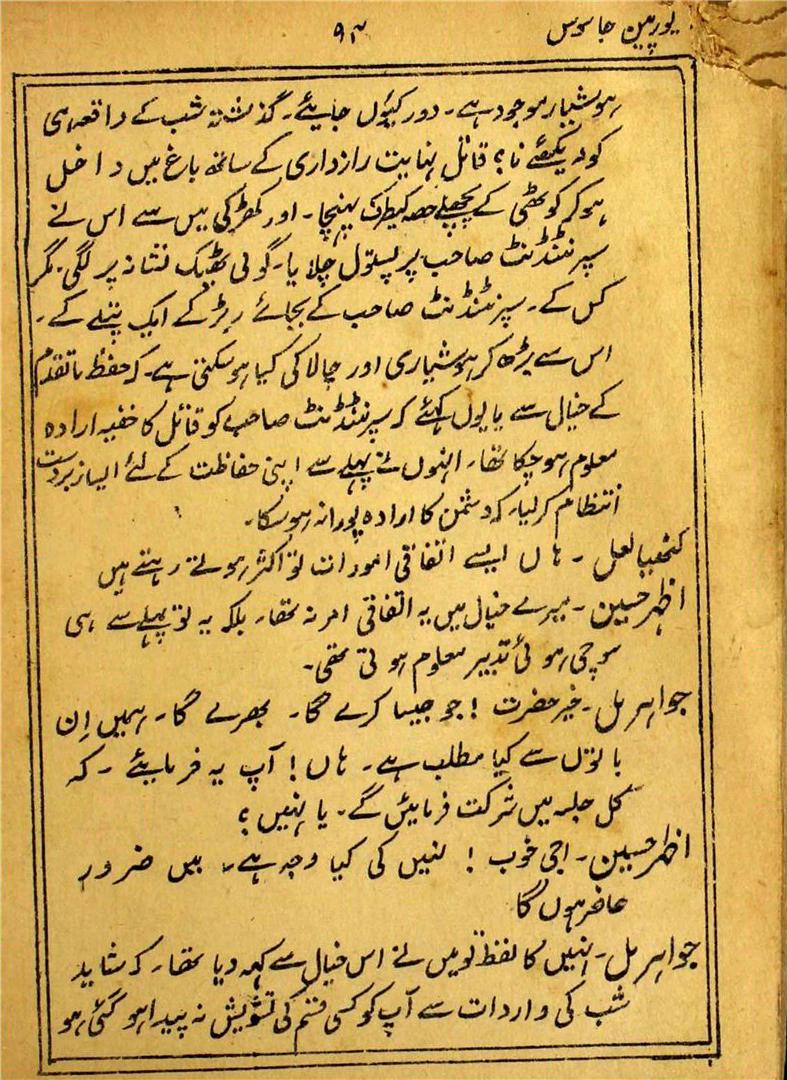 یورپین جاسوس
۹۳
ہوشیار موجود ہے۔ دور کیوں جایئے۔ گذشتہ شب کے واقعہ ہی
کو دیکھئے نا؟ قاتل نہایت رازداری کے ساتھ باغ میں داخل
ہو کر کوٹھی کے پچھلے حصہ کیطرف پہنچا۔ اور کھڑکی میں سے اس نے
سپرنٹنڈنٹ صاحب پر پستول چلایا۔ گولی ٹھیک نشانہ پر لگی۔ مگر
کس کے۔ سپرنٹنڈنٹ صاحب کے بجائے ربڑ کے ایک پتلے کے۔
اس سے بڑھ کر ہوشیاری اور چالاکی کیا ہوسکتی ہے۔ کہ حفظ ماتقدم
کے خیال سے یا یوں کہئے کہ سپرنٹنڈنٹ صاحب کو قاتل کا خفیہ ارادہ
معلوم ہوچکا تھا۔ انہوں نے پہلے سے اپنی حفاظت کے لئے ایسا زبردست
انتظام کر لیا۔ کہ دشمن کا ارادہ پورا نہ ہوسکا۔
کنھیالعل ۔ ہاں ایسے اتفاقی امورات تو اکثر ہوتے رہتے ہیں
اظہر حسین ۔ میرے خیال میں یہ اتفاقی امر نہ تھا۔ بلکہ یہ تو پہلے سے ہی
سوچی ہوئی تدبیر معلوم ہوتی تھی۔
جواہر مل ۔ خیر حضرت! جو جیسا کرے گا۔ بھرے گا۔ ہمیں اِن
باتوں سے کیا مطلب ہے۔ ہاں! آپ یہ فرمایئے ۔ کہ
کل جلسہ میں شرکت فرمائیں گے۔ یا نہیں؟
اظہر حسین ۔ اجی خوب! نہیں کی کیا وجہ ہے۔ میں ضرور
حاضر ہوں گا
جواہر مل ۔ نہیں کا لفظ تو میں نے اس خیال سے کہہ دیا تھا۔ کہ شاید
شب کی واردات سے آپ کو کسی قسم کی تشویش نہ پیدا ہو گئی ہو